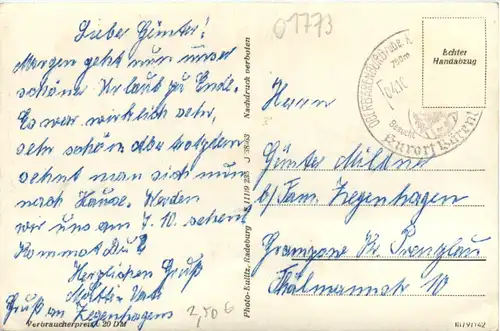 Lieber Günter!
Morgen geht nun unser
schöner Urlaub zu Ende.
Es war wirklich sehr,
sehr schön. Aber trotzdem
sehnt man sich nun
nach Hause. Werden
wir uns am 7.10. sehen?
Kommst Du?
Herzlichen Gruß
Mutti Vati
Gruß an Ziegenhagens
Verbraucherpreis: 20 DM
2,50 €
Photo-Kulitz, Radeburg III 11/9 235 J 38/63 Nachdruck verboten
01773
OBERBÄRENBURG
750m
Besucht
Kurort Bären
Echter
Handabzug
Herrn
Günter
b/ Fam. Ziegenhagen
Gramzow Kr. Prenzlau
Thälmannstr. 10